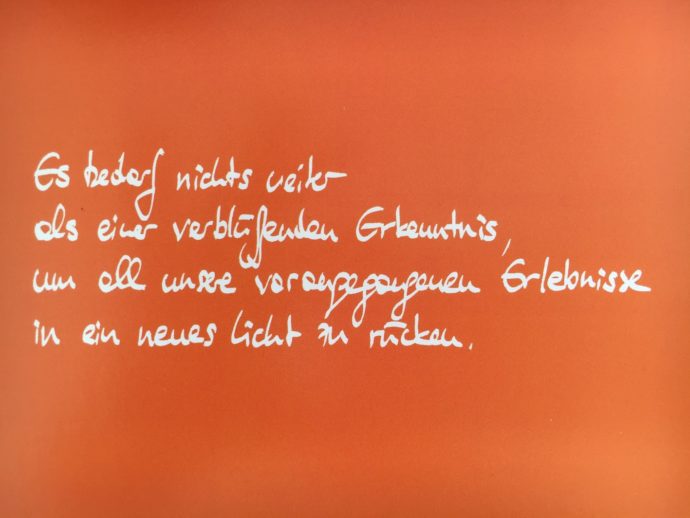 Es bedarf nichts weiter
als einer verblüffenden Erkenntnis,
um all unsere vorangegangenen Erlebnisse
in ein neues Licht zu rücken.